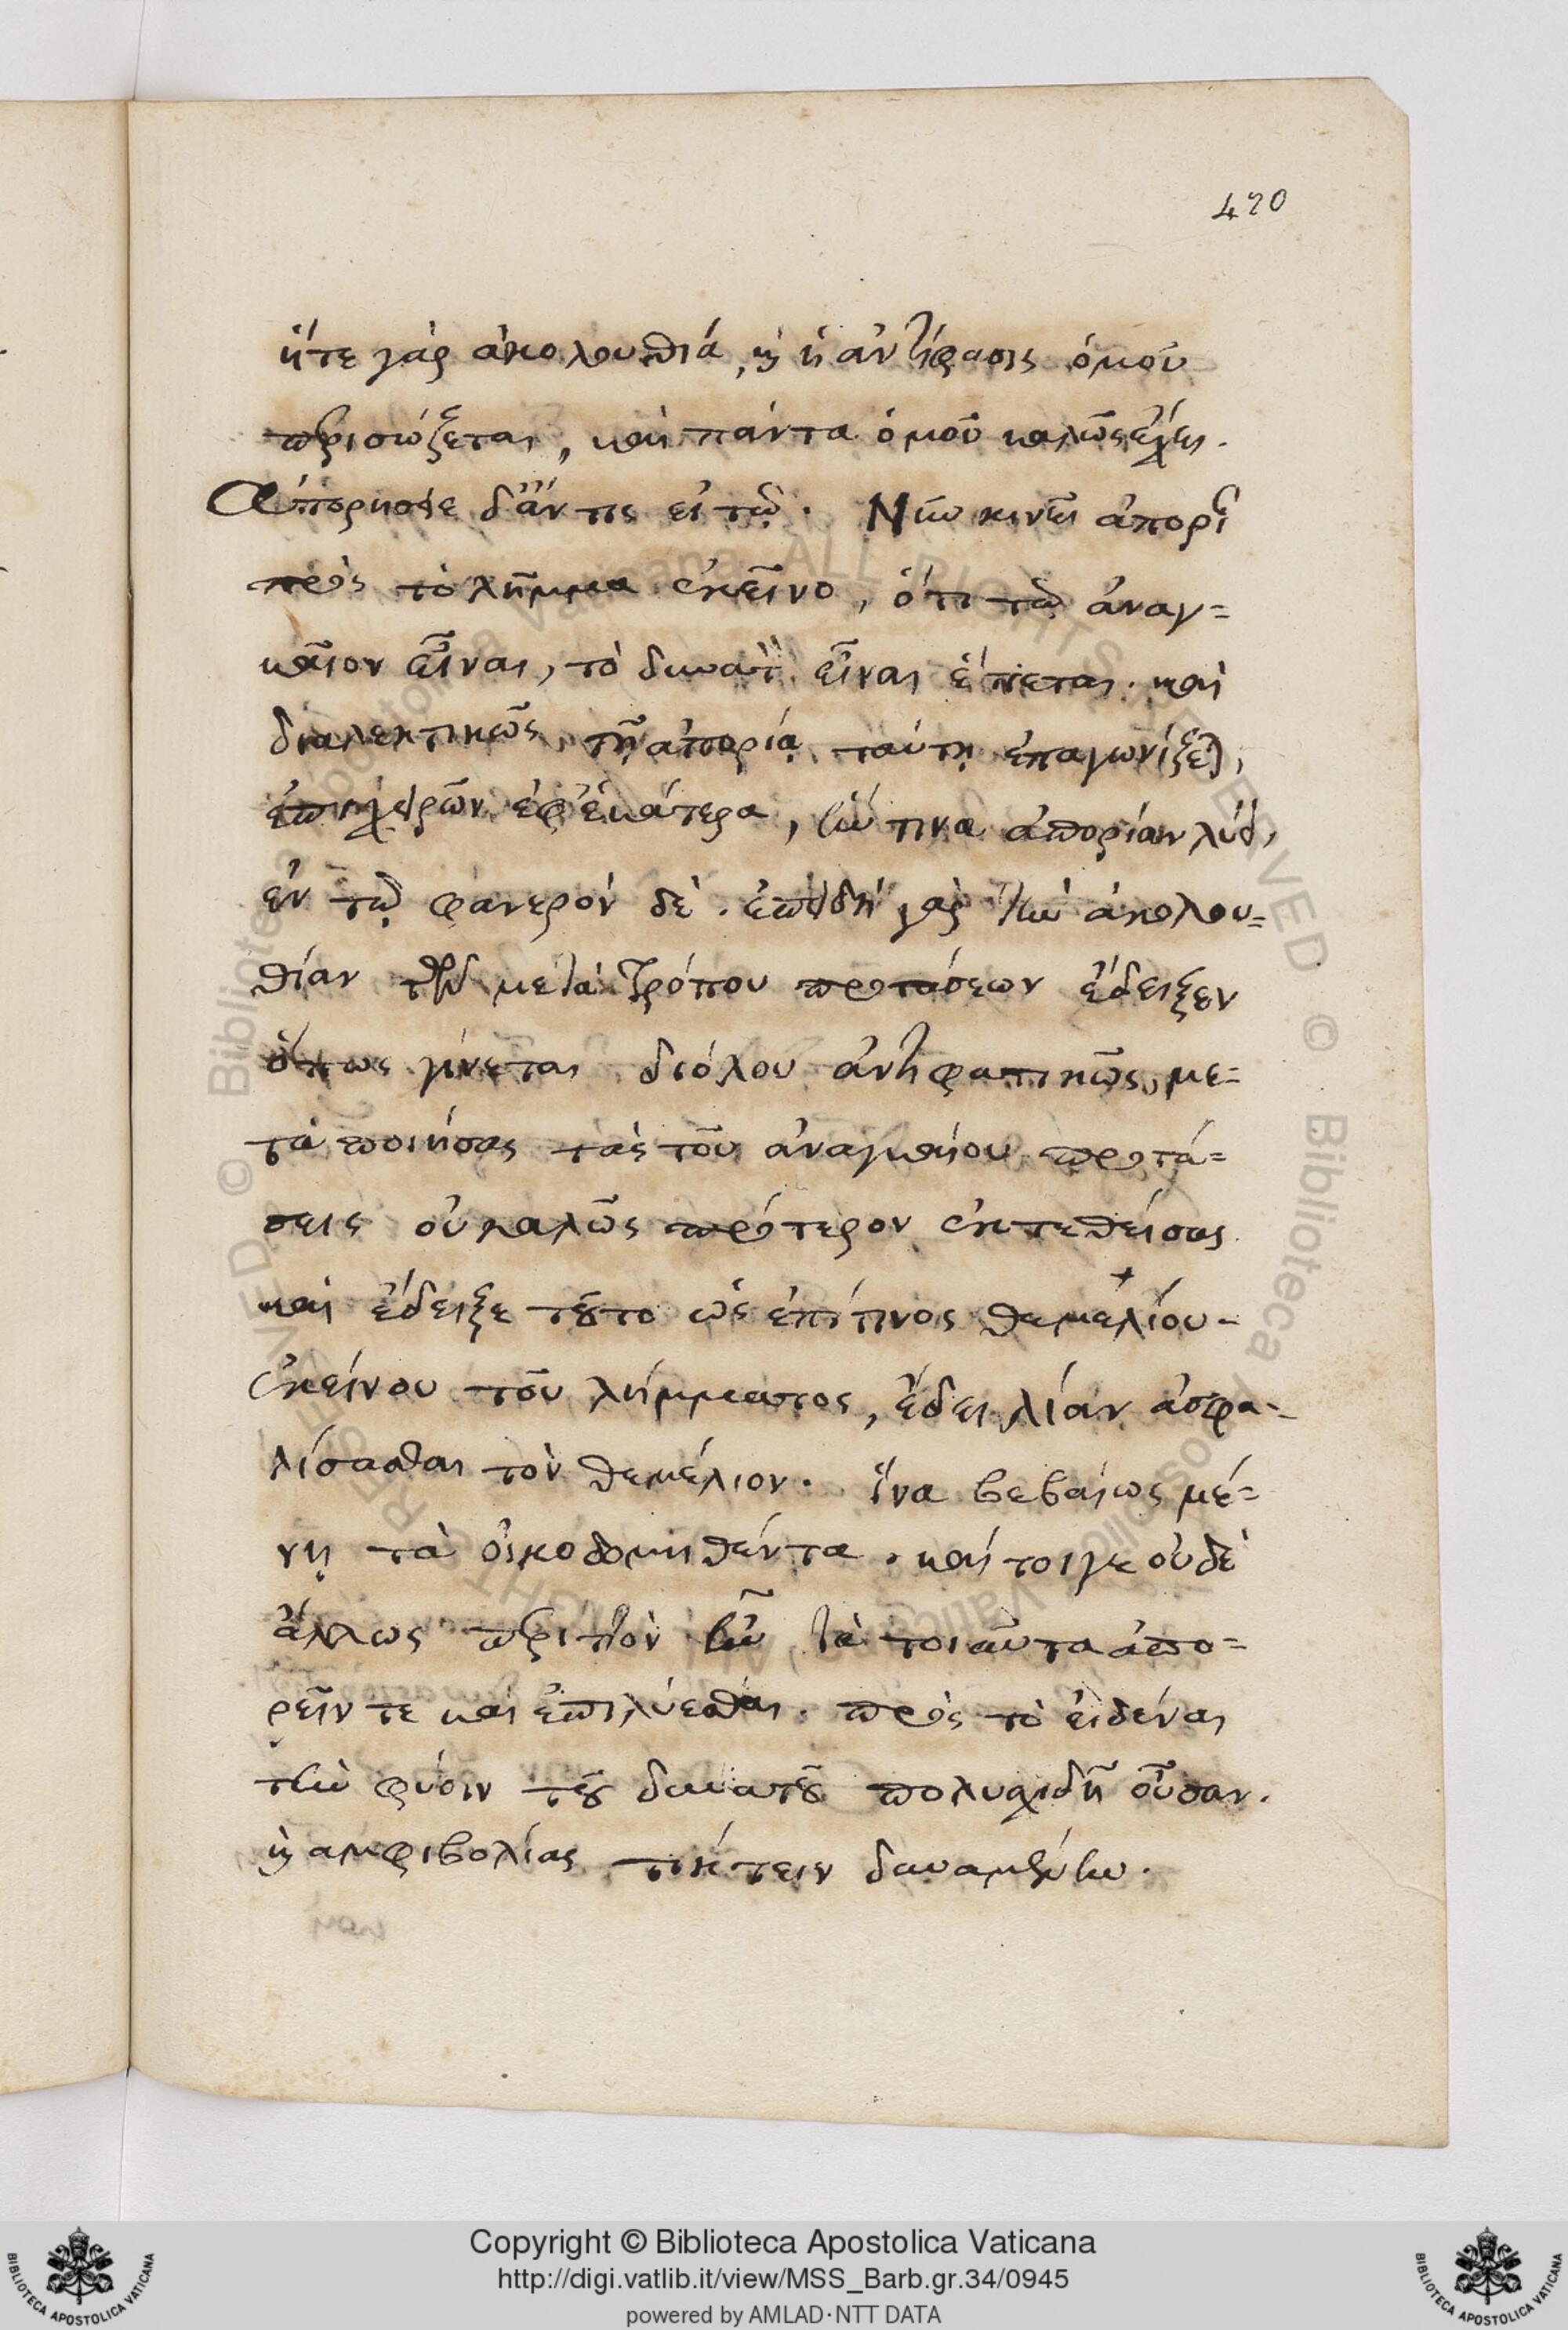 420
ἥτε γὰρ ἀκολουθιά, κὶ ἡ ἀντίφασις ὁμοῦ
περισώζεται, καὶ πάντα ὁμοῦ καλῶς ἔχει.
Ἀπορήσειε δ' ἄν τις εἰ τῷ. Νῦν κινεῖ ἀπορί
πρὸς τὸ λῆμμα ἐκεῖνο, ὅτι τῷ ἀναγ=
καῖον εἶναι, τὸ δυνατὸν εἶναι ἕπεται. καὶ
διαλεκτικῶς τῇ ἀπορίᾳ ταύτῃ ἐπαγωνίζεται,
ἐπιχειρῶν ἐφ' ἑκάτερα, ἥν τινα ἀπορίαν λύει,
ἐν τῷ φανερὸν δὲ. ἐπειδὴ γὰρ τὴν ἀκολου=
θίαν τῶν μετὰ τρόπου προτάσεων ἔδειξεν
ὅπως γίνεται διόλου ἀντιφατικῶς, με=
τὰ ποιήσας τὰς τοῦ ἀναγκαίου προτά=
σεις οὐ καλῶς πρότερον ἐκτεθείσας
καὶ ἔδειξε τοῦτο ὡς ἐπί τινος θεμελίου-
ἐκείνου τοῦ λήμματος, ἔδει λίαν ἀσφα-
λίσασθαι τὸν θεμέλιον. ἵνα βεβαίως μέ=
νῃ τὰ οἰκοδομηθέντα. καί τοιγε οὐδὲ
ἄλλως περιττὸν ἦν τὰ τοιαῦτα ἀπο=
ρεῖν τε καὶ ἐπιλύεσθαι. πρὸς τὸ εἰδέναι
τὴν φύσιν τοῦ δυνατοῦ πολυσχιδῆ οὖσαν.
κὶ ἀμφιβολίας τίκτειν δυναμένην.
Copyright © Biblioteca Apostolica Vaticana
http://digi.vatlib.it/view/MSS_Barb.gr.34/0945
powered by AMLAD·NTT DATA